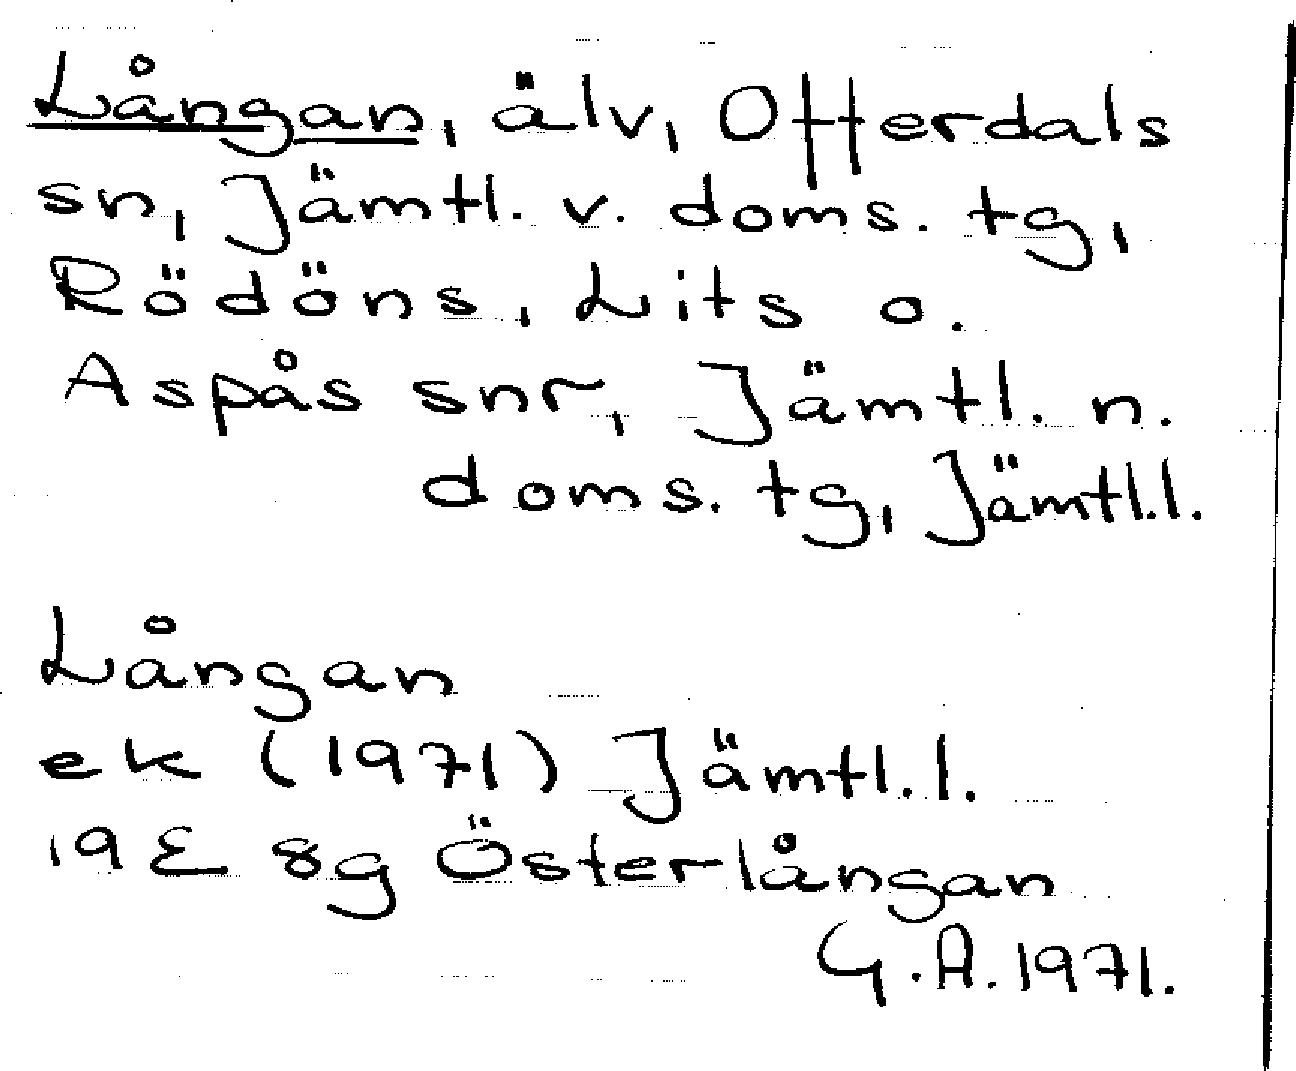 Långan, älv, Offerdals
sn, Jämtl. v. doms. tg,
Rödöns, Lits o.
Aspås snr, Jämtl. n.
doms. tg, Jämtl.l.
Långan
ek (1971) Jämtl.l.
19E 8g Österlångan
G.A.1971.